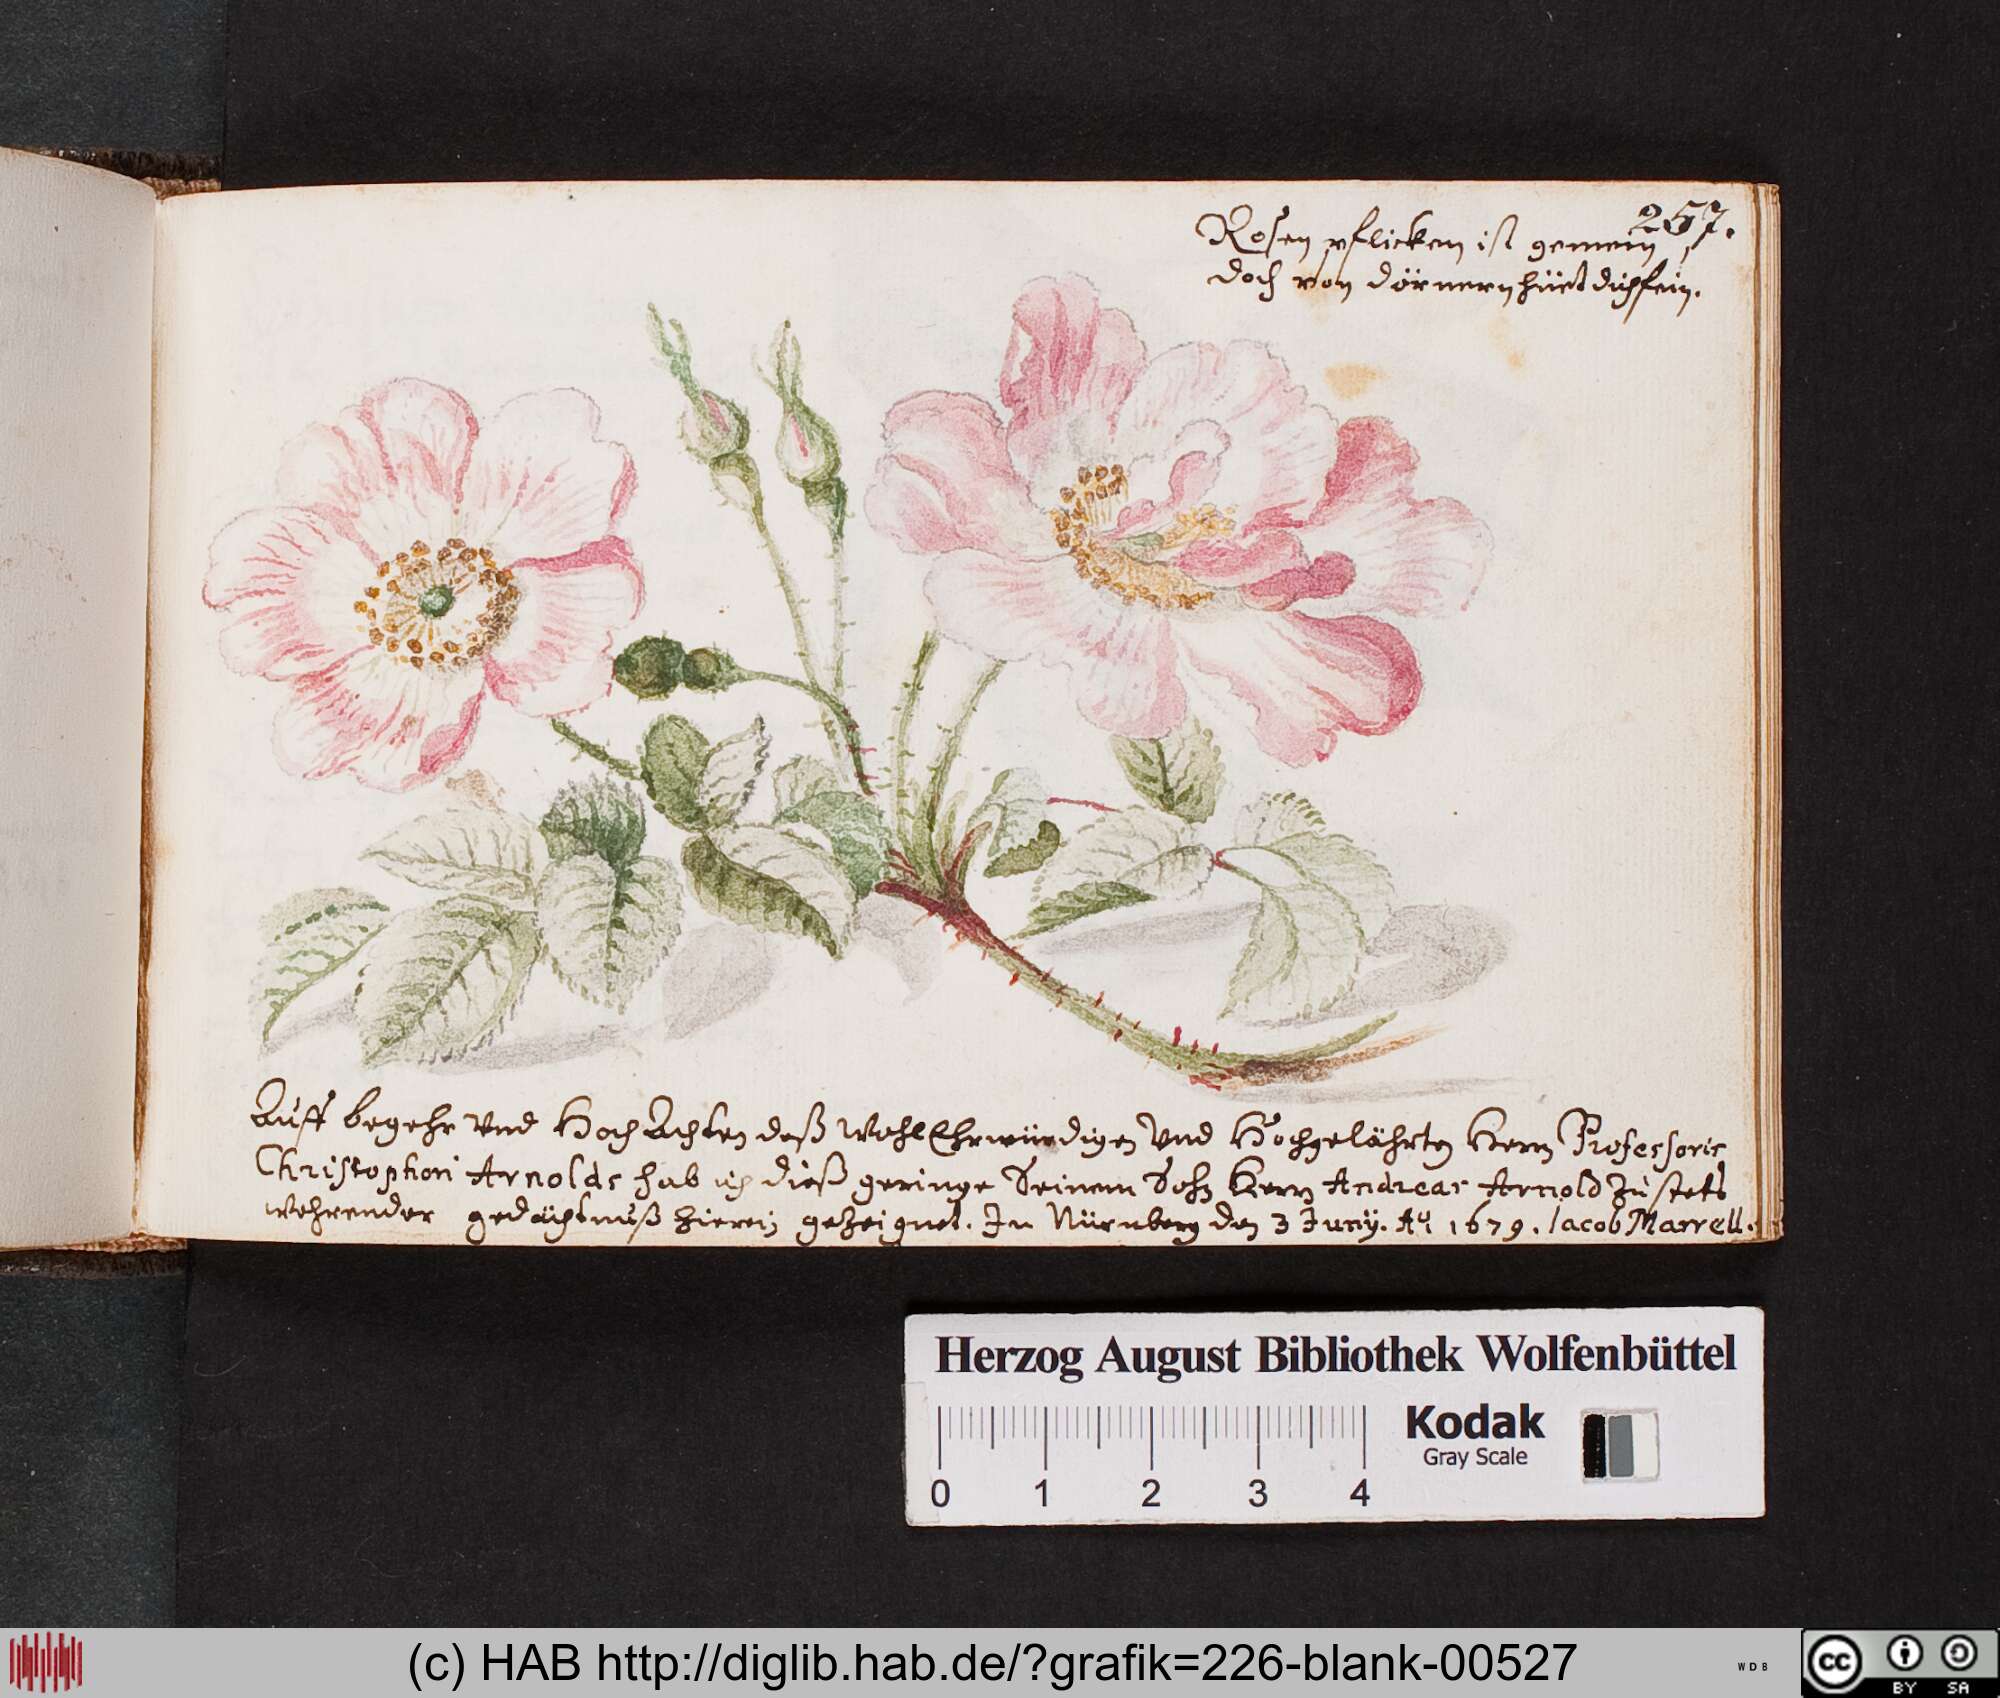 257.
Rosen pflicken ist gemein,
doch von dörnern hüet dich fein.
Auff begehr Vnd HochAchten deß WohlEhrwürdigen Vnd Hochgelährten Herrn Professoris
Christophori Arnolds hab ich dieß geringe Seinem Sohn Herrn Andreas Arnold zu stets
wehrender gedächtnuß hierein gezeignet. In Nürnberg den 3 Juny. Aº 1679. Iacob Marrell.
Herzog August Bibliothek Wolfenbüttel
Kodak
Gray Scale
0 1 2 3 4
(c) HAB http://diglib.hab.de/?grafik=226-blank-00527
WDB
cc BY SA